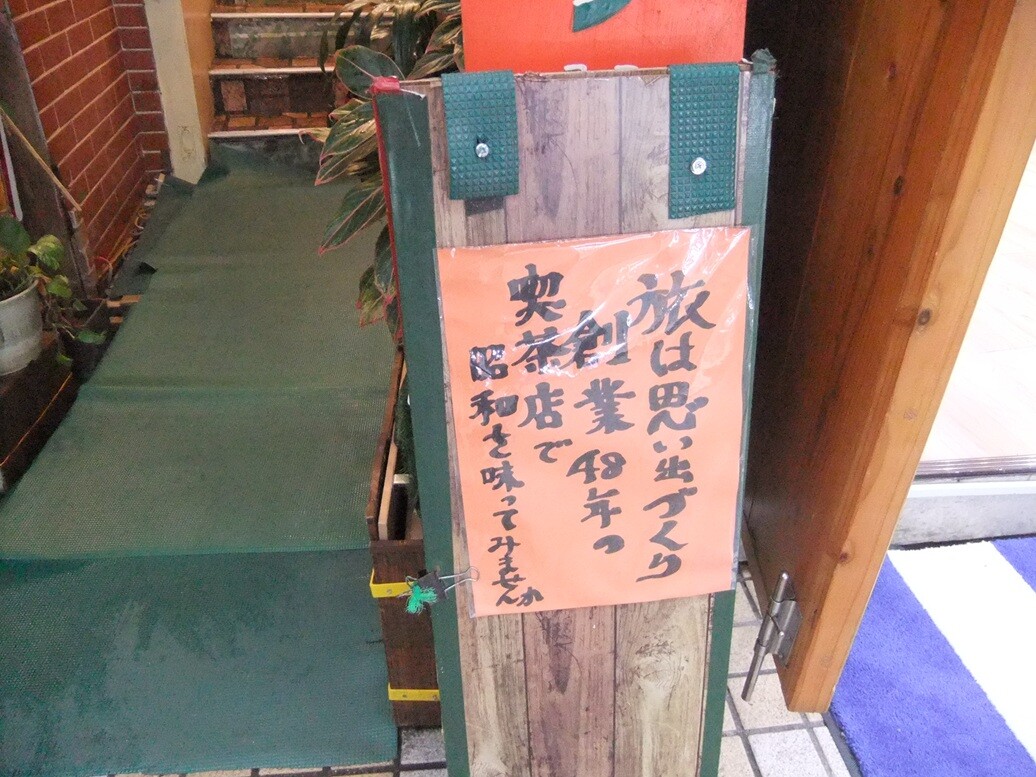 旅は思い出づくり
創業48年の
喫茶店で
昭和を味ってみませんか